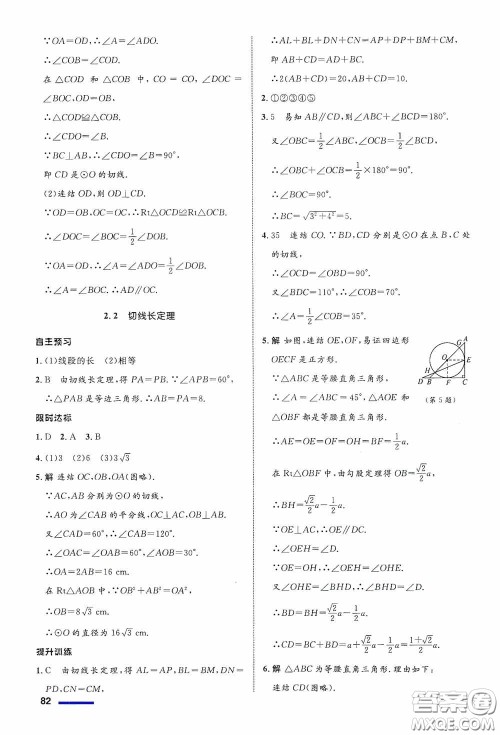 ∵OA=OD,∴∠A=∠ADO.
∴∠COB=∠COD.
在△COD 和 △COB 中,CO=CO,∠DOC=
∠BOC,OD=OB,
∴△COD≌△COB.
∴∠CDO=∠B.
∵BC⊥AB,∴∠CDO=∠B=90°,
即 CD 是⊙O 的切线.
(2)连结 OD,由上可知∠CDO=90°.
∵OD=OB,OC=OC,∴Rt△ODC≌Rt△OBC.
∴∠DOC=∠BOC=1/2∠DOB.
∵OA=OD,∴∠A=∠ADO=1/2∠DOB.
∴∠A=∠BOC,∴AD∥OC.
2.2 切线长定理
自主预习
1.(1)线段的长 (2)相等
2.B 由切线长定理,得 PA=PB.∵∠APB=60°,
∴△PAB 是等边三角形.∴AB=PA=8.
限时达标
1.D 2.A 3.B
4.(1)3 (2)6 (3)3√3
5.解 连结 OC,OB,OA(图略).
∵AC,AB 分别为⊙O 的切线,
∴AO 为∠CAB 的平分线,OC⊥AC,OB⊥AB.
又∠CAD=60°,∴∠CAB=120°.
∴∠OAC=∠OAB=60°,∴∠AOB=30°.
∴OA=2AB=16 cm.
在 Rt△AOB 中,∵OB²+AB²=OA²
∴OB=8√3 cm.
∴⊙O 的直径为 16√3 cm.
提升训练
1.C 由切线长定理,得 AL=AP,BL=BM,DN=
PD,CN=CM,
82
∴AL+BL+DN+CN=AP+PD+BM+CM,
即 AB+CD=AD+BC.
∴2(AB+CD)=20,AB+CD=10.
2.①②③④⑤
3.5 易知 AB∥CD,∴∠ABC+∠BCD=180°.
又∠OBC=1/2∠ABC,∠OCB=1/2∠BCD,
∴∠OBC+∠OCB=1/2×180°=90°.
∴BC=√3²+4²=5.
4.35 连结 CO.∵BD,CD 分别是⊙O 在点 B,C 处
的切线,
∴∠OCD=∠OBD=90°.
∵∠BDC=110°,
∴∠COB=70°.
又∠A=1/2∠COB,
∴∠A=35°.
5.解 如图,连结 OE,OF,易证四边形
OECF 是正方形.
∵△ABC 是等腰直角三角形,
∴∠A=∠ABC=45°,△AOE 和
△OBF 都是等腰直角三角形.
(第 5 题)
∴AE=OE=OF=BF=1/2a.
在 Rt△OBF 中,由勾股定理得 OB=√2/2a.
∴BH=√2/2a-1/2a.
∵OE⊥AC,∴OE∥DC.
∴∠OEH=∠D.
∵OH=OE=1/2a,∴∠OEH=∠OHE.
又∠OHE=∠BHD,∴∠BHD=∠D.
∴BD=BH=√2/2a-1/2a.
∴CD=a+√2/2a-1/2a=1+√2/2a.
6.解 △ABC 为等腰直角三角形.理由如下:
连结 CD(图略).
A
G
O
E
H
D
B
F
C